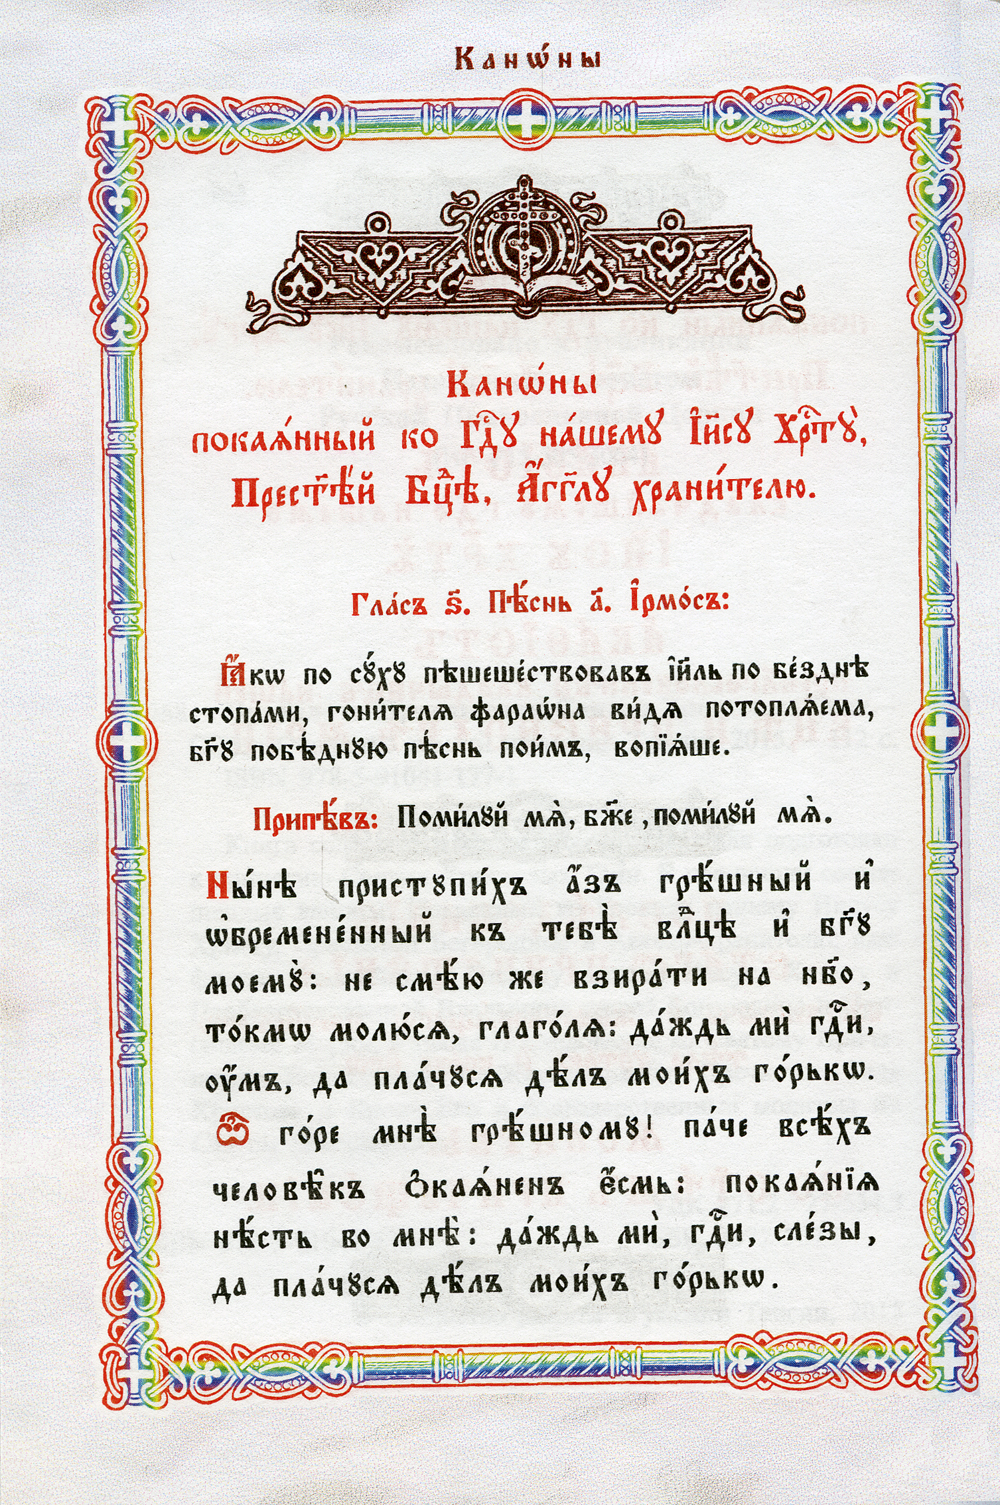 Канѡ́ны
Канѡ́ны
покаѧ́нный ко Гдⷭ҇ꙋ на́шемꙋ І҆и҃сꙋ Хрⷭ҇тꙋ̀,
Прест҃ѣ́й Бцⷣѣ, А҆́гг҃лꙋ храни́телю.
Гла́съ ѕ҃. Пѣ́снь а҃. І҆рмо́съ:
Ꙗ҆́кѡ по сꙋ́хꙋ пѣшеше́ствовавъ і҆и҃ль по бе́зднѣ
стопа́ми, гони́телѧ фараѡ́на ви́дѧ потоплѧ́ема,
бг҃ꙋ побѣ́днꙋю пѣ́снь пои́мъ, вопїѧ́ше.
Припѣ́въ: Поми́лꙋй мѧ̀, бж҃е, поми́лꙋй мѧ̀.
Ны́нѣ пристꙋпи́хъ а҆́зъ грѣ́шный и҆
ѡ҆бремене́нный къ тебѣ̀ влⷣцѣ и҆ бг҃ꙋ
моемꙋ̀: не смѣ́ю же взира́ти на нб҃о,
то́кмѡ молю́сѧ, глаго́лѧ: да́ждь мѝ гдⷭ҇и,
ᲂу҆́мъ, да пла́чꙋсѧ дѣ́лъ мои́хъ го́рькѡ.
Ѽ го́ре мнѣ̀ грѣ́шномꙋ! па́че всѣ́хъ
человѣ̑къ ѻ҆каѧ́ненъ є҆́смь: покаѧ́нїѧ
нѣ́сть во мнѣ̀: да́ждь мѝ, гдⷭ҇и, сле́зы,
да пла́чꙋсѧ дѣ́лъ мои́хъ го́рькѡ.